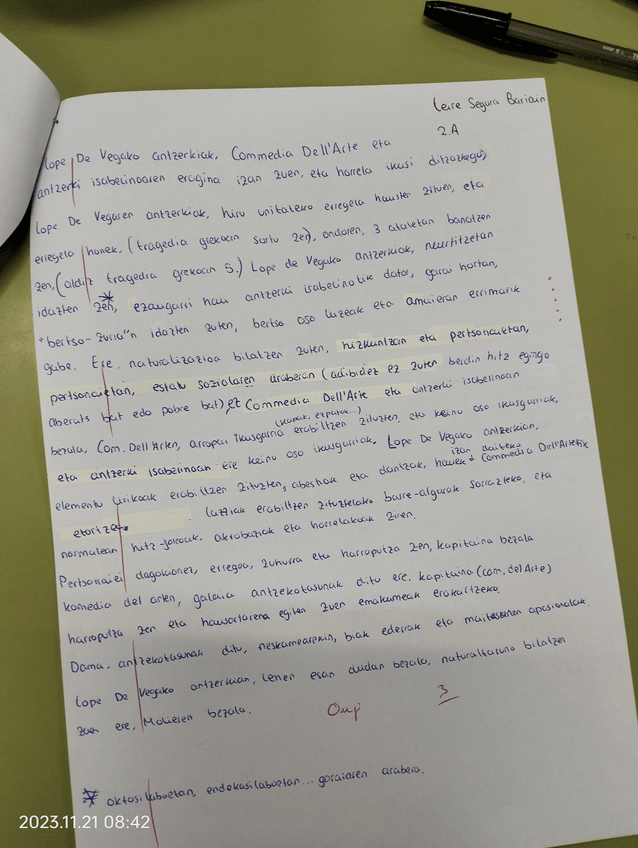 Leire Segura Bariain
2.A
Lope De Vegako antzerkiak, Commedia Dell'Arte eta
antzerki isabelinoaren eragina izan zuen, eta horrela ikusi ditzakegu,
Lope De Vegaren antzerkiak, hiru unitateko erregela hausten zituen, eta
erregela honek, (tragedia grekoan sortu zen), ondoren, 3 ataletan banatzen
zen, (aldiz tragedia grekoan 5.) Lope de Vegako antzerkiak, neurtitzetan
idazten zen, * ezaugarri hau antzerki isabelinotik dator, garai hortan,
"bertso-zuria"n idazten zuten, bertso oso luzeak eta amaieran errimarik
gabe. Ere naturalizazioa bilatzen zuten, hizkuntzan eta pertsonaietan,
pertsonaietan, estatu sozialaren araberan (adibidez ez zuten berdin hitz egingo
aberats bat edo pobre bat) et Commedia Dell'Arte eta antzerki isabelinoan
bezala, Com. Dell'Arten, arropai ikusgarria erabiltzen zituzten, eta keinu oso ikusgarriak,
eta antzerki isabelinoan ere keinu oso ikusgarriak, Lope De Vegako antzerkian,
elementu lirikoak erabiltzen zituzten, abestiak eta dantzak, hauek izan daiteke Commedia Dell'Artetik
etortzea. lazziak erabiltzen zituztelako barre-algarak sorrazteko, eta
normalean hitz-jokoak, akrobaziak eta horrelakoak ziren.
Pertsonaiei dagokionez, erregea, zuhurra eta harroputza zen, kapitaina bezala
komedia del arten, galaia antzekotasunak ditu ere, kapitaina (com. del Arte)
harroputza zen eta hausartarena egiten zuen emakumeak erakartzeko.
Dama, antzekotasunak ditu, neskamearekin, biak ederrak eta maitasunen apasionalak.
Lope De Vegako antzerkian, lehen esan dudan bezala, naturaltasuna bilatzen
zuen ere, Molieren bezala.
3
* oktosilaboetan, endekasilaboetan... garaiaren arabera.
2023.11.21 08:42